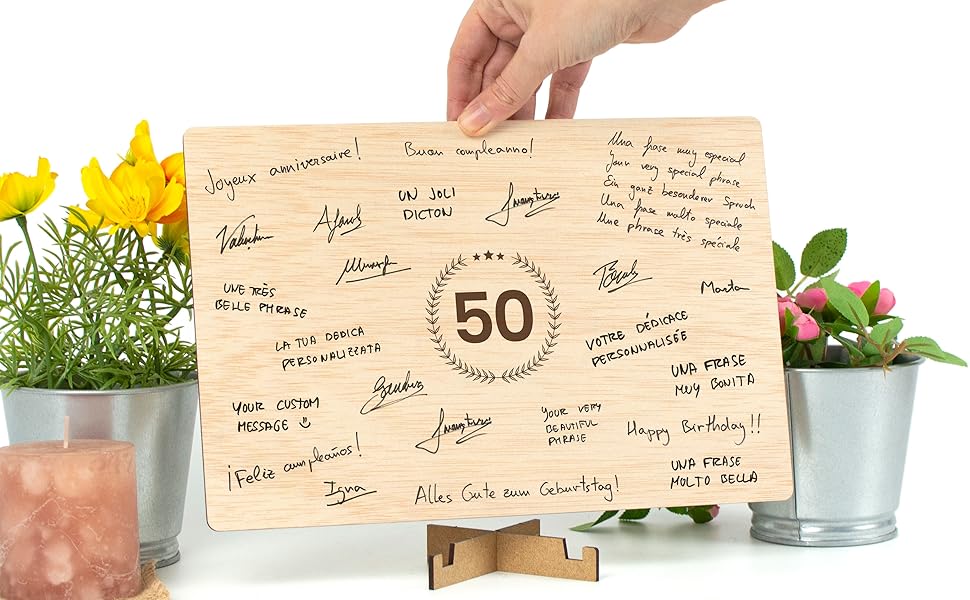 Joyeux anniversaire!
Buon compleanno!
Una frase muy especial
Your very special phrase
Ein ganz besonderer Spruch
Una frase molto speciale
Une phrase très spéciale
UN JOLI
DICTON
UNE TRÈS
BELLE PHRASE
50
Marta
LA TUA DEDICA
PERSONALIZZATA
VOTRE DÉDICACE
PERSONNALISÉE
UNA FRASE
MUY BONITA
YOUR CUSTOM
MESSAGE
YOUR VERY
BEAUTIFUL
PHRASE
Happy Birthday!!
¡Feliz cumpleaños!
Igna
Alles Gute zum Geburtstag!
UNA FRASE
MOLTO BELLA